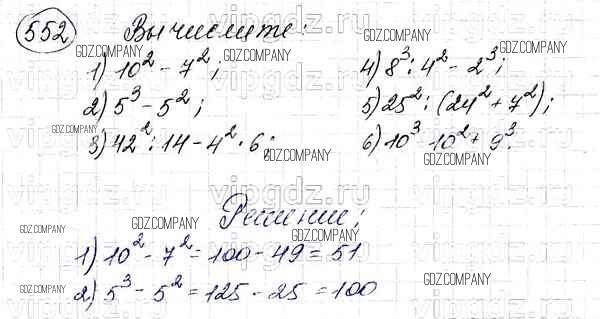 552 Вычислите:
1) 10² - 7²;
2) 5³ - 5²;
3) 42² : 14 - 4² · 6;
4) 8³ : 4² - 2³;
5) 25² : (24² + 7²);
6) 10³ 10² + 9³.
Решение:
1) 10² - 7² = 100 - 49 = 51
2) 5³ - 5² = 125 - 25 = 100
GDZ.COMPANY
vipgdz.ru